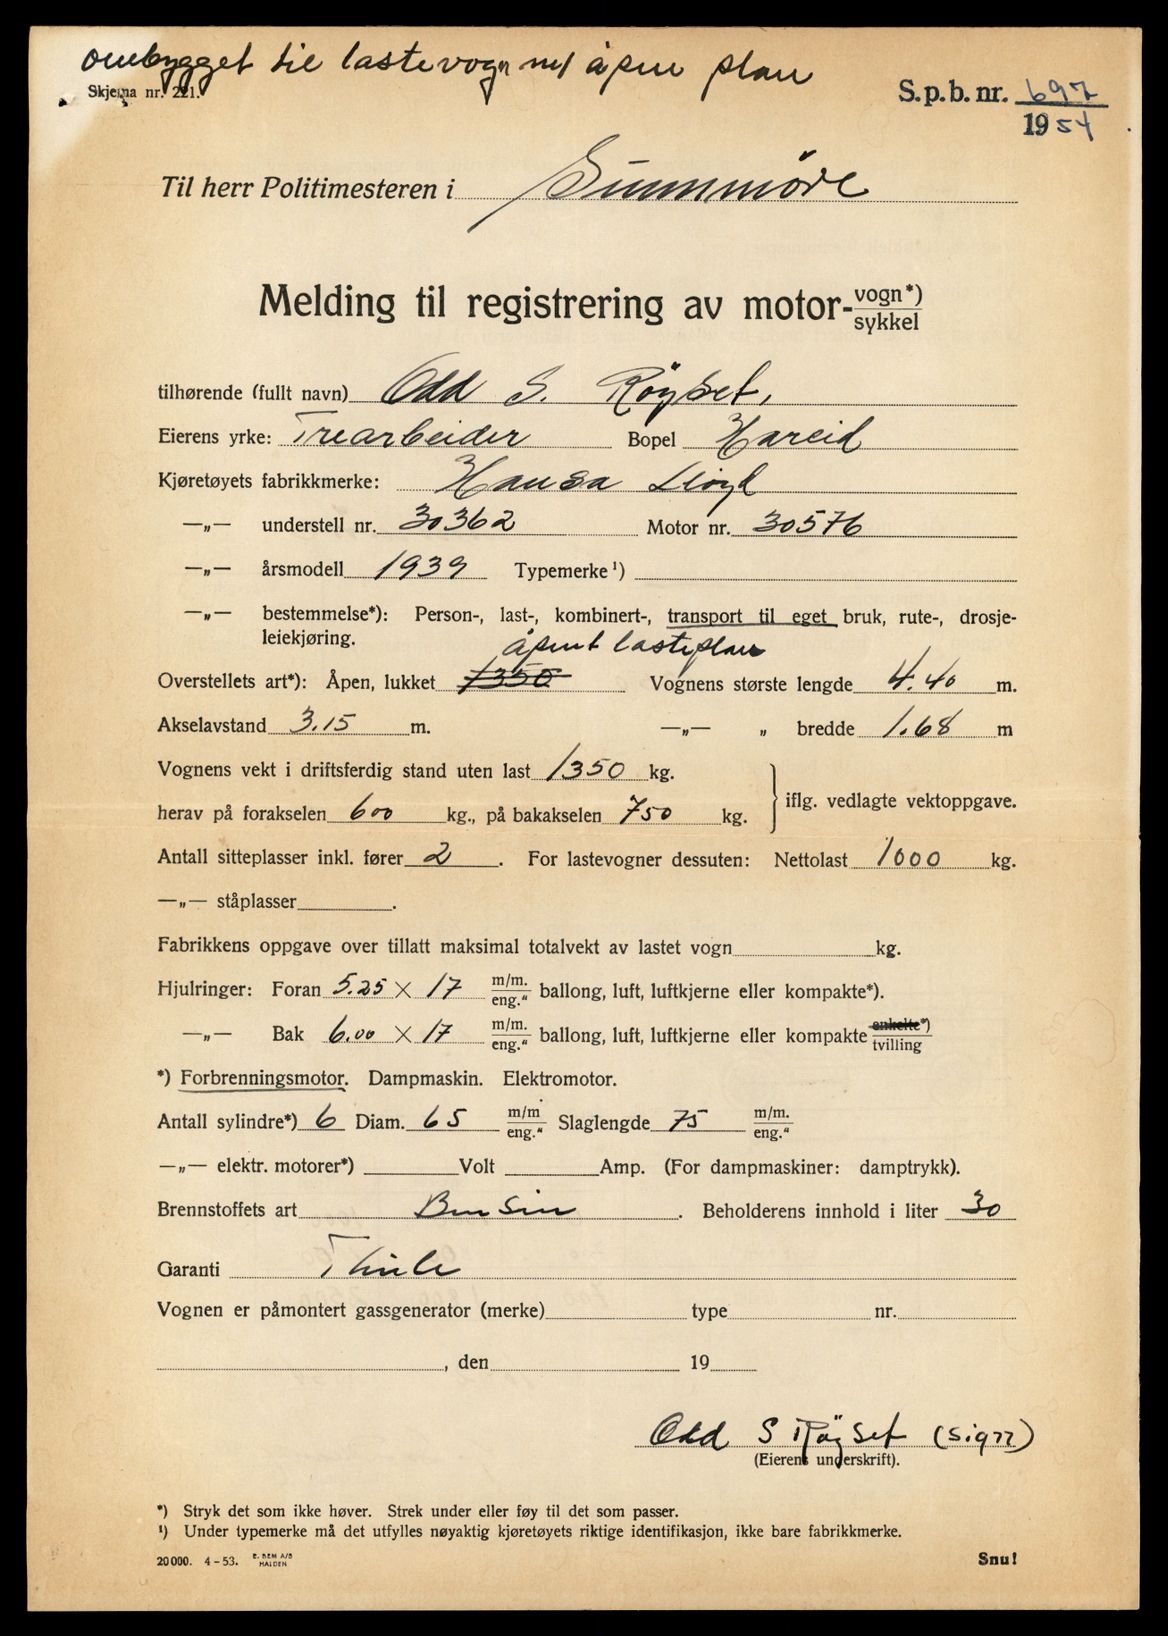 ombygget til lastevogn m/ åpen plan
Skjema nr. 221.
S.p.b. nr. 697
1954
Til herr Politimesteren i Sunnmøre
Melding til registrering av motor-vogn*)
sykkel
tilhørende (fullt navn) Odd S. Røyset,
Eierens yrke: Trearbeider Bopel Hareid
Kjøretøyets fabrikkmerke: Hansa Lloyd
—„— understell nr. 30362 Motor nr. 30576
—„— årsmodell 1939 Typemerke¹)
—„— bestemmelse*): Person-, last-, kombinert-, transport til eget bruk, rute-, drosje-
leiekjøring.
åpent lasteplan
Overstellets art*): Åpen, lukket 1350 Vognens største lengde 4.40 m.
Akselavstand 3.15 m. —„— „ bredde 1.68 m
Vognens vekt i driftsferdig stand uten last 1350 kg.
iflg. vedlagte vektoppgave.
herav på forakselen 600 kg., på bakakselen 750 kg.
Antall sitteplasser inkl. fører 2. For lastevogner dessuten: Nettolast 1000 kg.
—„— ståplasser .
Fabrikkens oppgave over tillatt maksimal totalvekt av lastet vogn kg.
Hjulringer: Foran 5.25 × 17 m/m. eng.“ ballong, luft, luftkjerne eller kompakte*).
—„— Bak 6.00 × 17 m/m. eng.“ ballong, luft, luftkjerne eller kompakte enkelte*) tvilling
*) Forbrenningsmotor. Dampmaskin. Elektromotor.
Antall sylindre*) 6 Diam. 65 m/m eng.“ Slaglengde 75 m/m. eng.“
—„— elektr. motorer*) Volt Amp. (For dampmaskiner: damptrykk).
Brennstoffets art Bensin. Beholderens innhold i liter 30
Garanti Thule
Vognen er påmontert gassgenerator (merke) type nr.
, den 19
Odd S Røyset (sign)
(Eierens underskrift).
*) Stryk det som ikke høver. Strek under eller føy til det som passer.
¹) Under typemerke må det utfylles nøyaktig kjøretøyets riktige identifikasjon, ikke bare fabrikkmerke.
20000. 4-53. E. SEM A/S HALDEN
Snu!